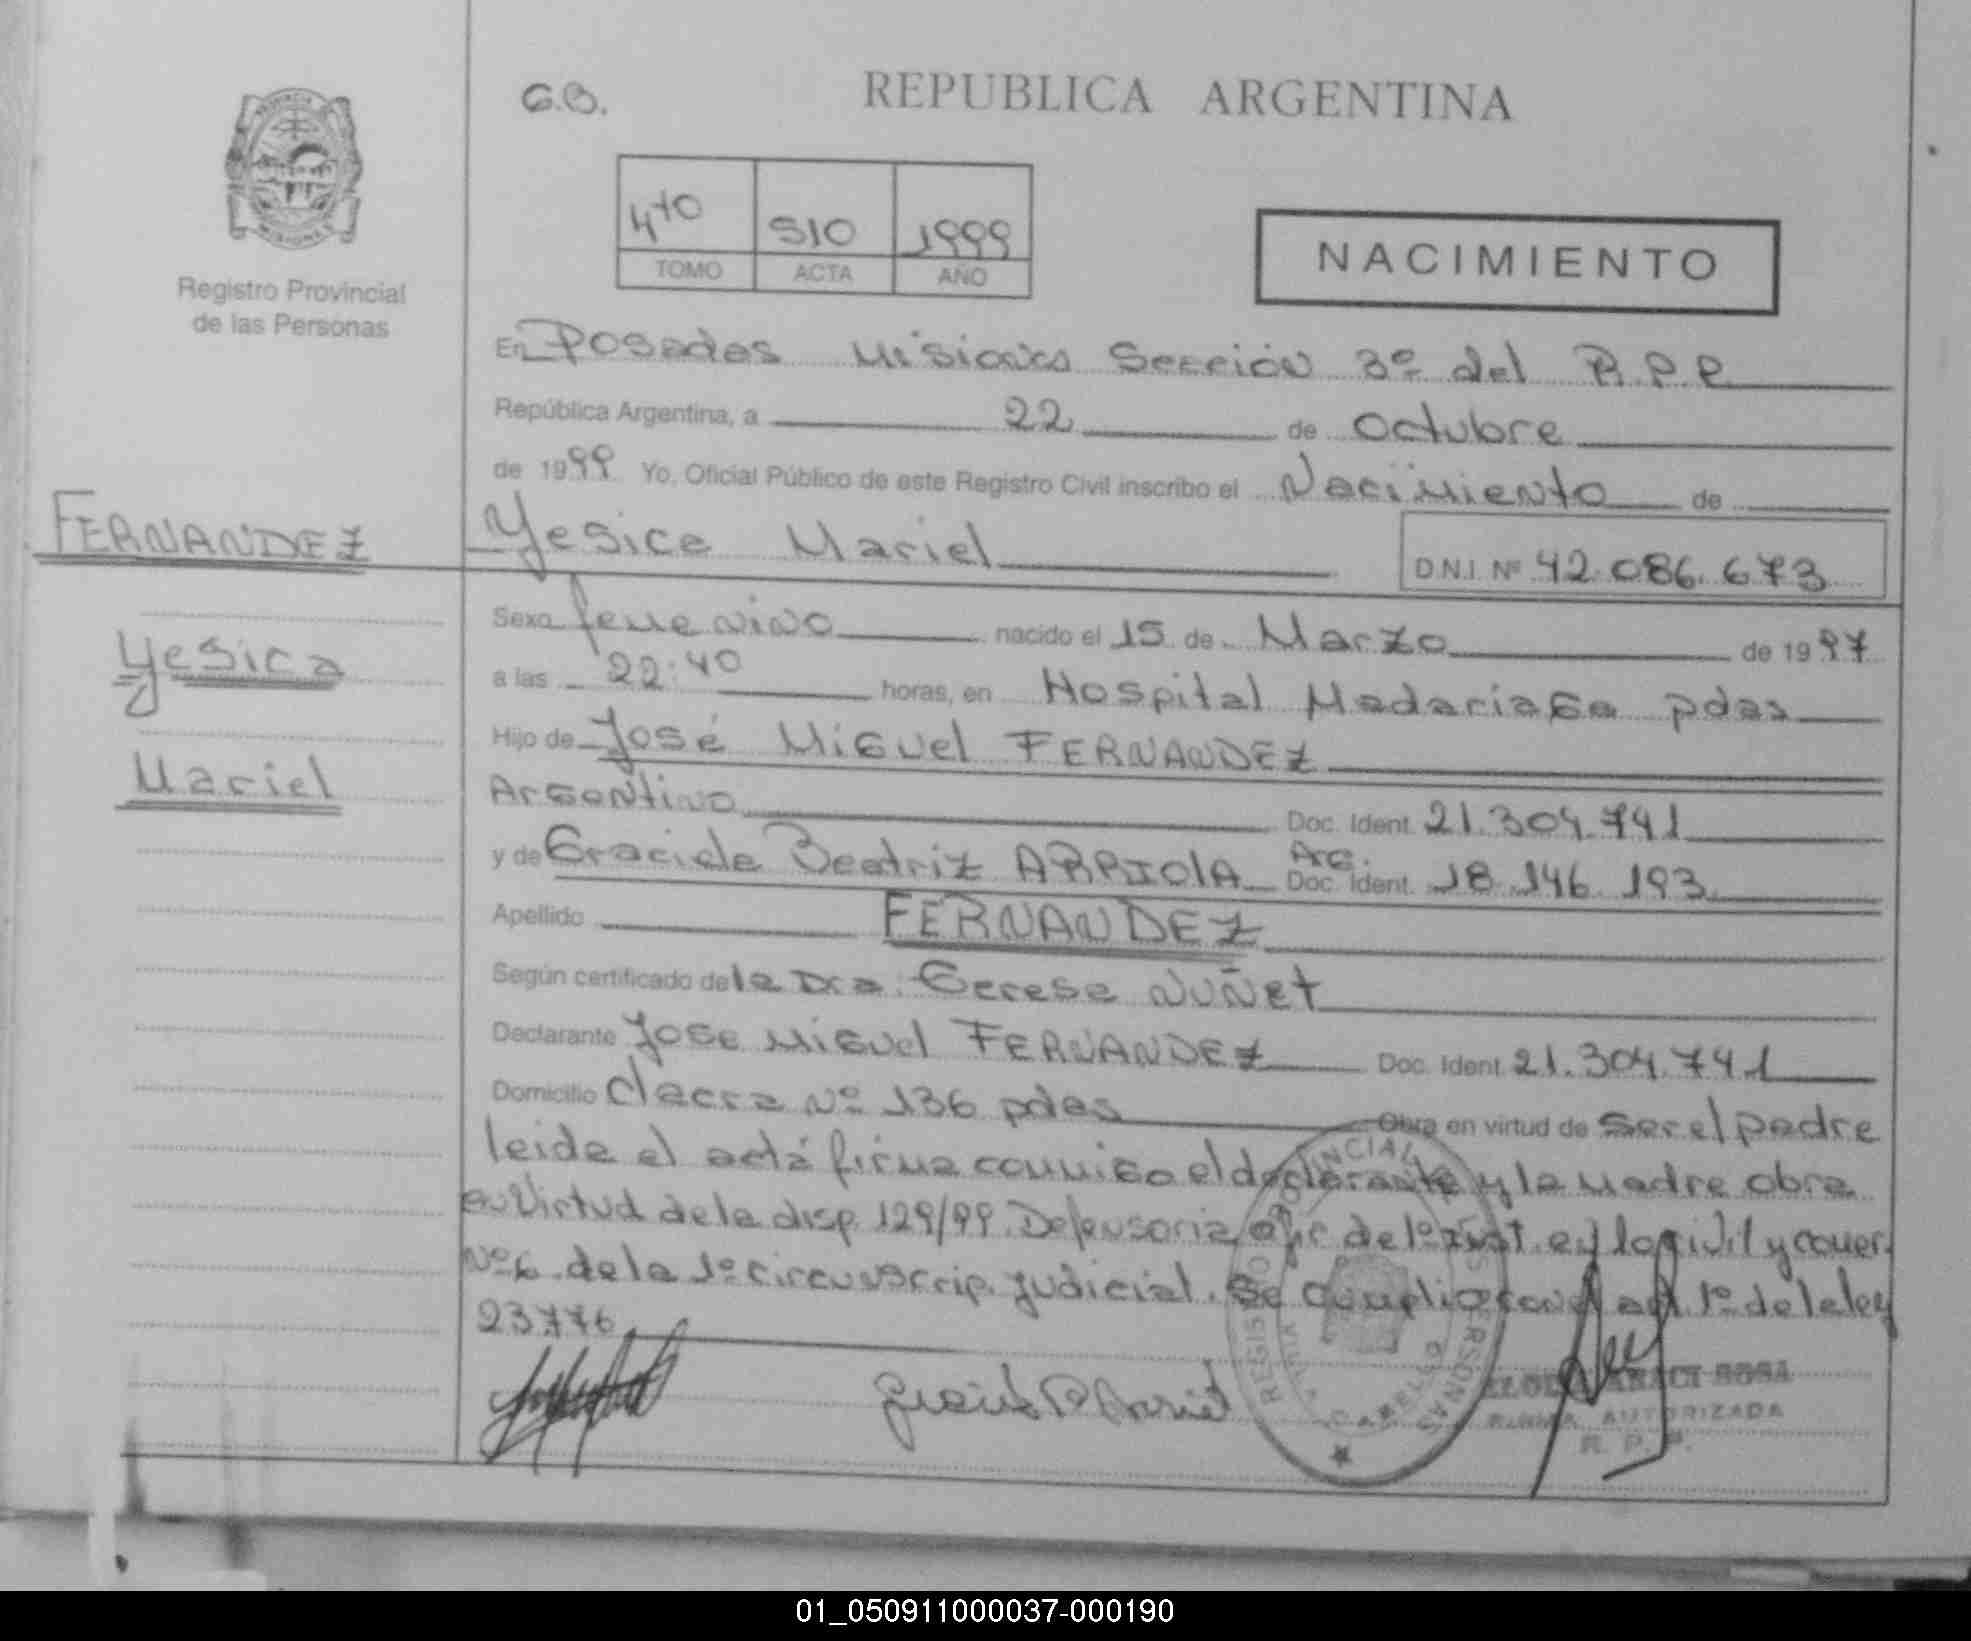 G.B.
REPUBLICA ARGENTINA
4to 510 1999
TOMO ACTA AÑO
NACIMIENTO
MISIONES
Registro Provincial
de las Personas
En Posadas Misiones Sección 3º del R.P.P
República Argentina, a 22 de Octubre
de 1999 Yo, Oficial Público de este Registro Civil inscribo el Nacimiento de
FERNANDEZ
Yesica Mariel
D.N.I. Nº 42.086.673
Yesica
Mariel
Sexo femenino nacido el 15 de Marzo de 1997
a las 22:40 horas, en Hospital Madariaga pdas
Hijo de José Miguel FERNANDEZ
Argentino Doc. Ident. 21.304.741
y de Graciela Beatriz ARRIOLA Arg. Doc. Ident. 18.146.193
Apellido FERNANDEZ
Según certificado de la Dra. NUÑEZ
Declarante Jose Miguel FERNANDEZ Doc. Ident. 21.304.741
Domicilio Chacra Nº 136 pdas Obra en virtud de ser el padre
leida el acta firma conmigo el declarante y la madre obra
en Virtud de la disp. 129/99. Defensoria ofic de 1º inst. en lo civil y comer.
Nº 6 de la 1º circunscrip. Judicial. Se cumplio con el art 1º de la ley
23776
REGISTRO PROVINCIAL PERSONAS
ROSA
FIRMA AUTORIZADA
R. P. P.
01_050911000037-000190